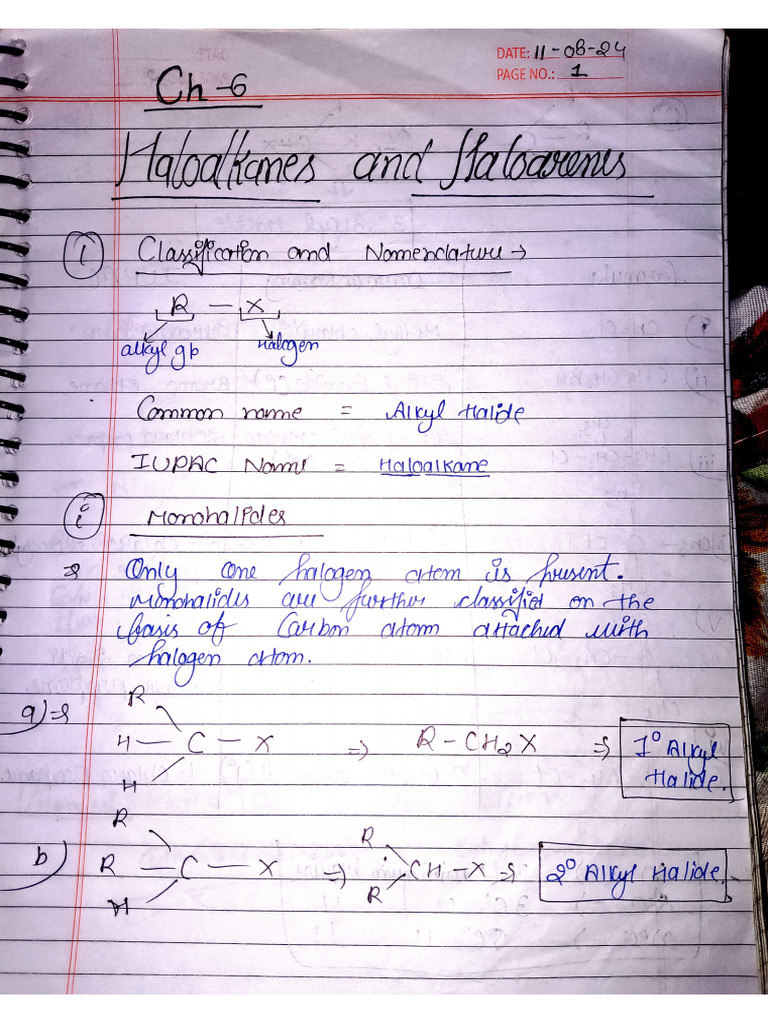 DATE: 11-08-24
PAGE NO.: 1
Ch-6
Haloalkanes and Haloarenes
1 Classification and Nomenclature →
R — X
alkyl gp halogen
Common name = Alkyl Halide
IUPAC Name = Haloalkane
i Monohalides
Only one halogen atom is present.
Monohalides are further classified on the
basis of Carbon atom attached with
halogen atom.
a)⇒
R
H — C — X ⇒ R-CH2X ⇒ 1° Alkyl Halide.
H
b)
R
R — C — X ⇒ R R CH-X ⇒ 2° Alkyl Halide.
H